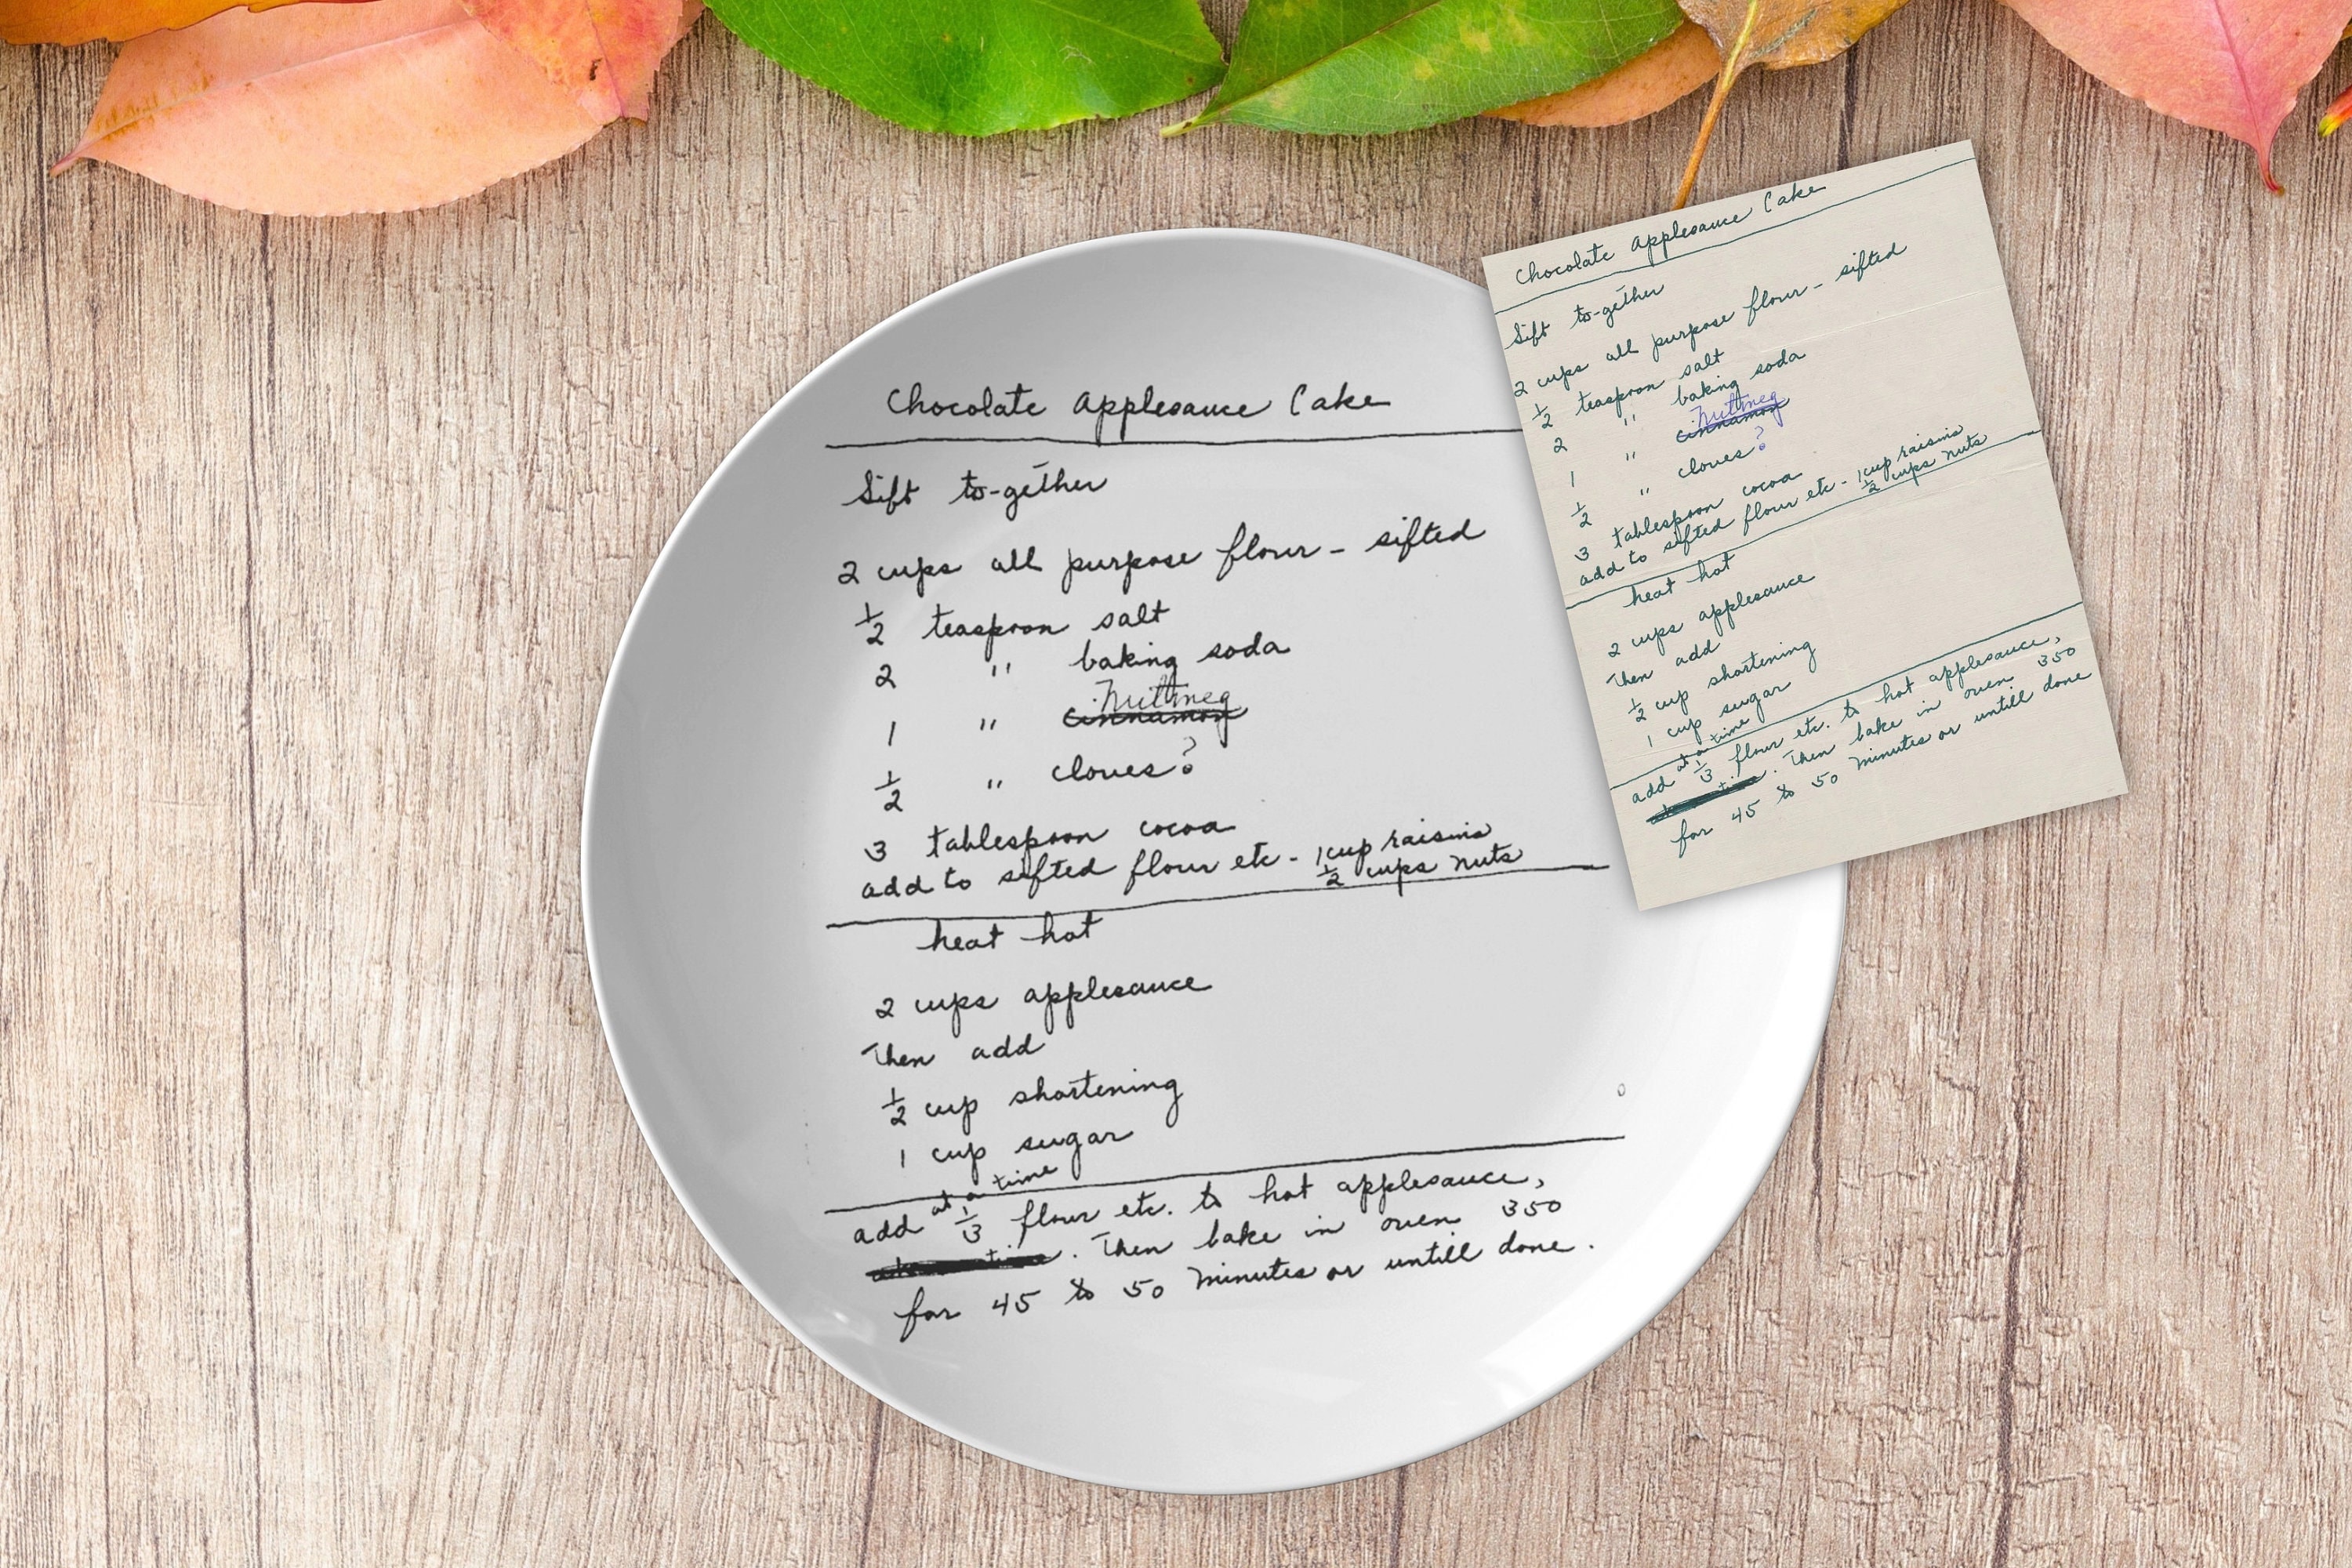 Chocolate Applesauce Cake
Sift to-gether
2 cups all purpose flour - sifted
1/2 teaspoon salt
2 " baking soda
Nuttmeg
1 " cinnamon
1/2 " cloves?
3 tablespoon cocoa
add to sifted flour etc - 1 cup raisins
1/2 cups nuts
heat hot
2 cups applesauce
Then add
1/2 cup shortening
1 cup sugar
at a time
add 1/3 flour etc. to hot applesauce,
. Then bake in oven 350
for 45 to 50 minutes or untill done.
Chocolate Applesauce Cake
Sift to-gether
2 cups all purpose flour - sifted
1/2 teaspoon salt
2 " baking soda
Nuttmeg
1 " cinnamon
1/2 " cloves?
3 tablespoon cocoa
add to sifted flour etc - 1 cup raisins
1/2 cups nuts
heat hot
2 cups applesauce
Then add
1/2 cup shortening
1 cup sugar
at a time
add 1/3 flour etc. to hot applesauce,
. Then bake in oven 350
for 45 to 50 minutes or untill done